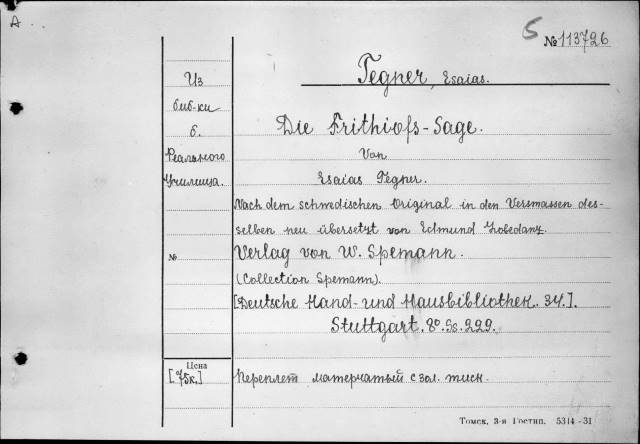 A
5 № 113726
Tegner, Esaias.
Из
биб-ки
б.
Реального
Училища.
Die Frithiofs-Sage.
Von
Esaias Tegner.
Nach dem schwedischen Original in den Versmassen des-
selben neu übersetzt von Edmund Lobedanz.
№
Verlag von W. Spemann.
(Collection Spemann).
[Deutsche Hand- und Hausbibliothek. 34.].
Stuttgart. 8º. Ss. 229.
Цена
[75к.]
Переплет матерчатый с зол. тисн.
Томск, 3-я Гостип. 5314-31